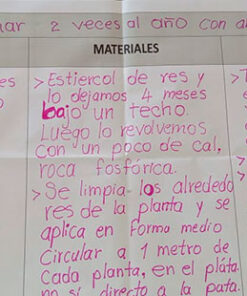 ar 2 veces al año con a
MATERIALES
es
> Estiercol de res y
lo dejamos 4 meses
bajo un techo.
Luego lo revolvemos
con un poco de cal,
roca fosfórica.
> Se limpia los alrededo
res de la planta y se
aplica en forma medio
Circular a 1 metro de
Cada planta, en el pláta
no sí directo a la pata.